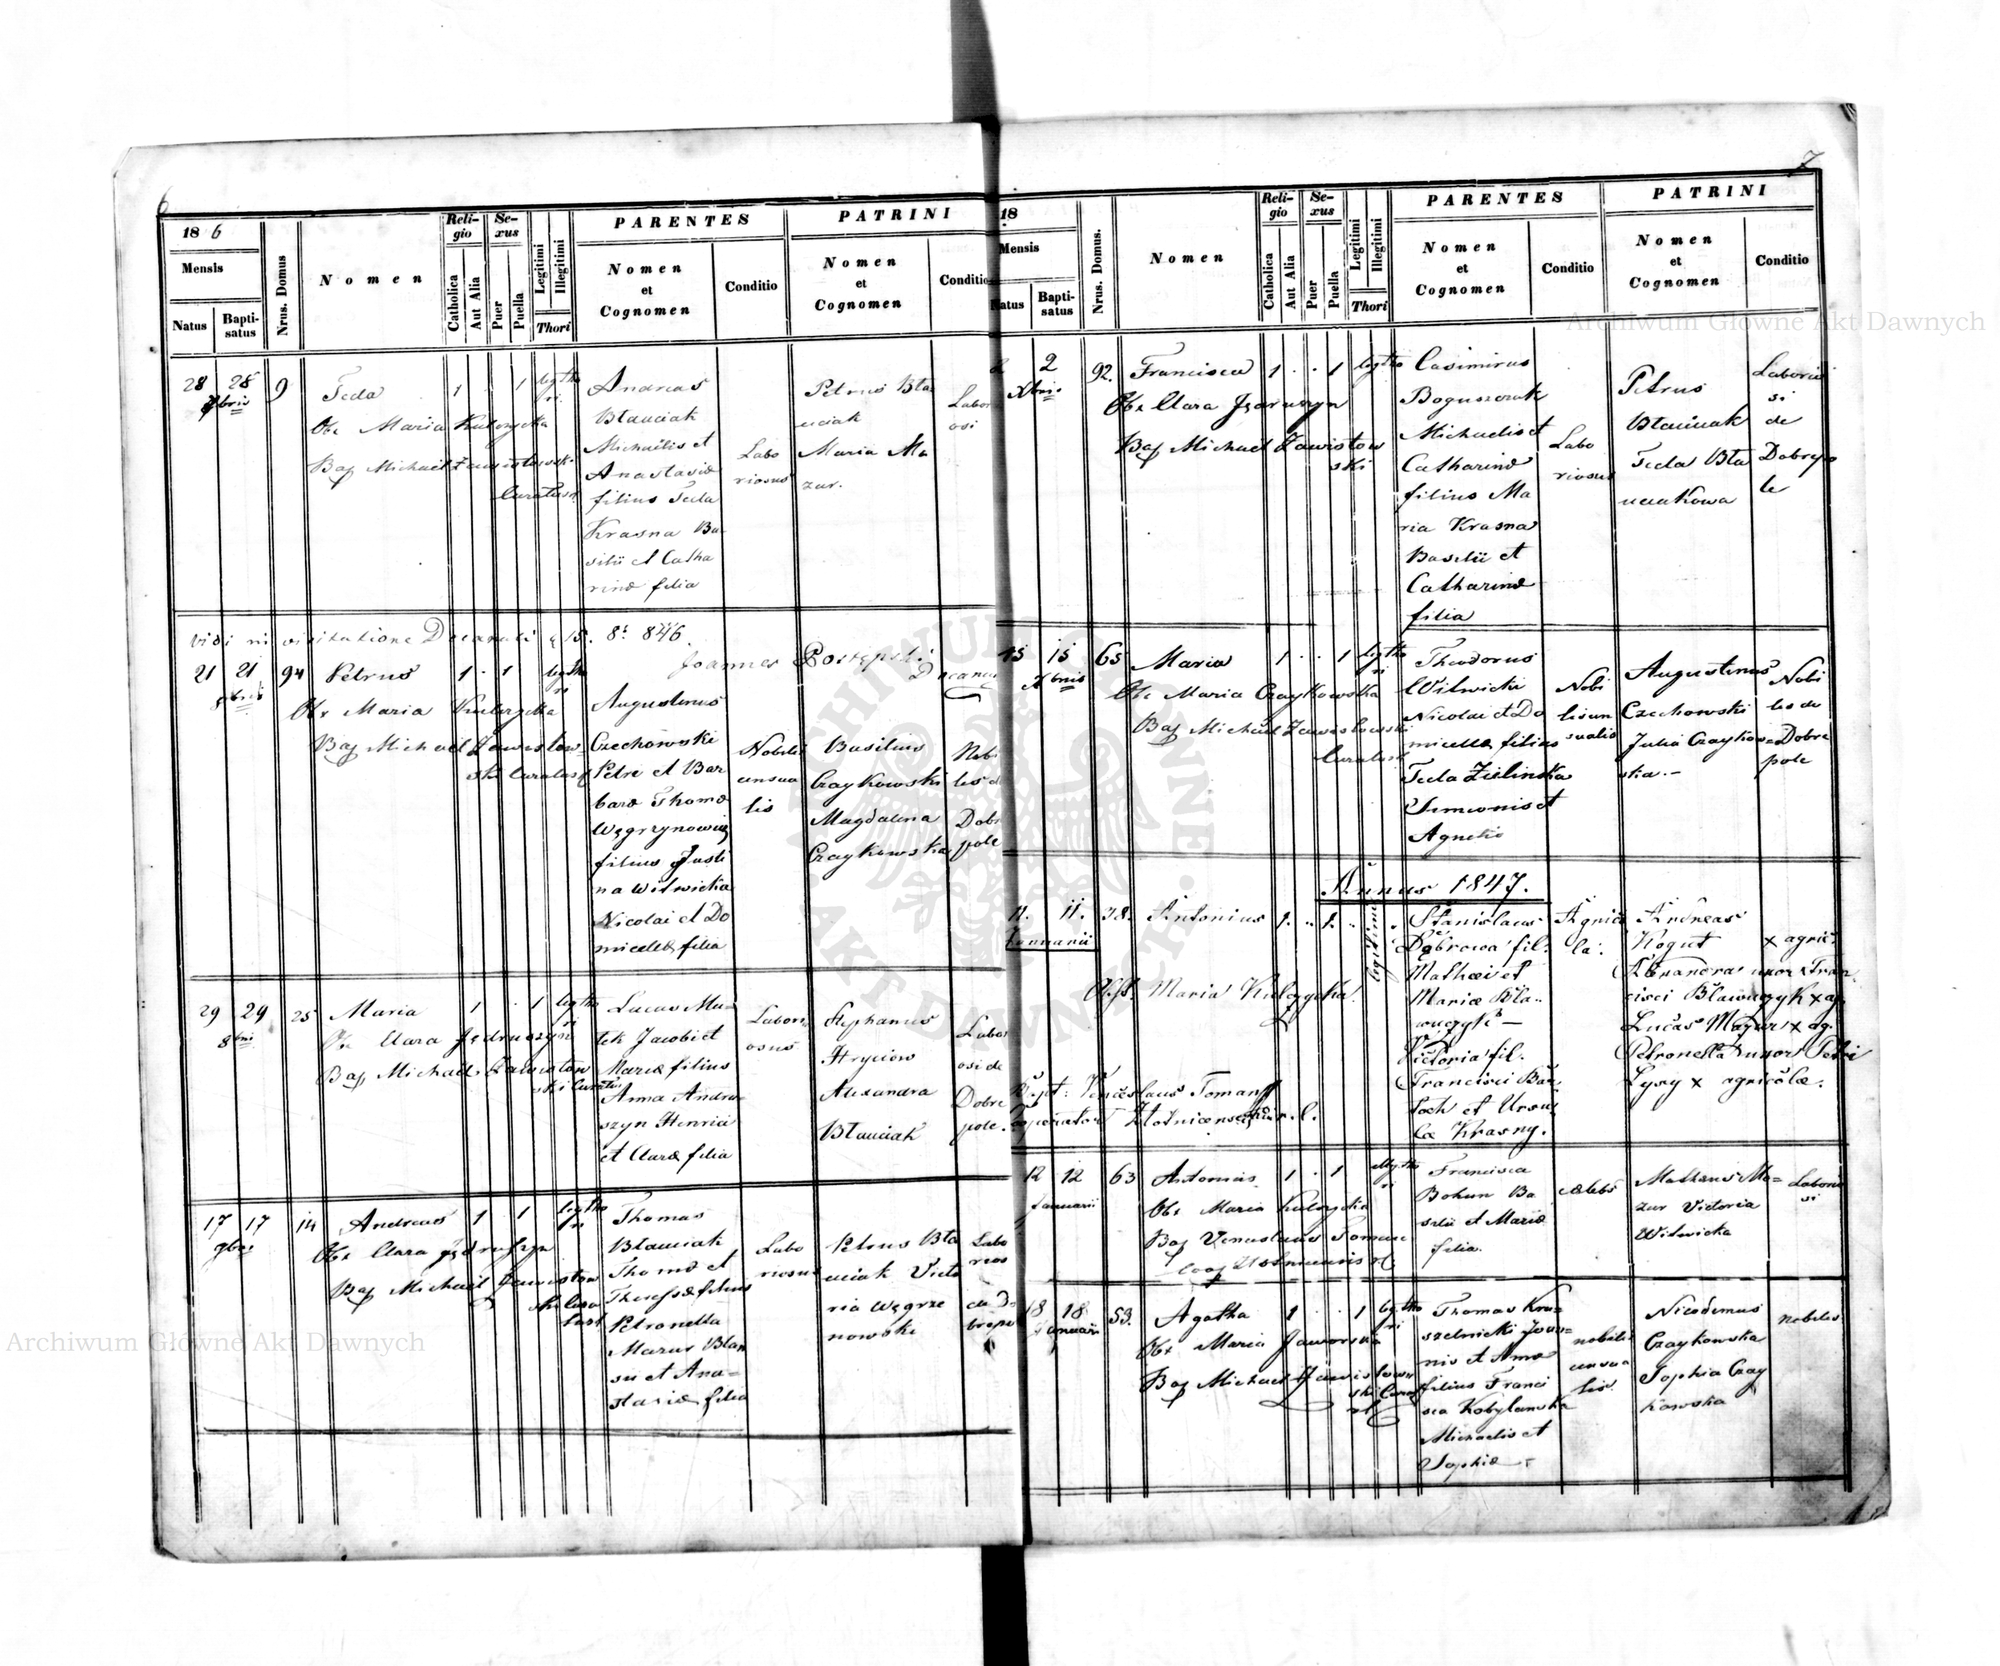 6
18 6
Mensis
Natus
Baptisatus
Nrus. Domus
Nomen
Religio
Catholica
Aut Alia
Sexus
Puer
Puella
Legitimi
Illegitimi
Thori
PARENTES
Nomen
et
Cognomen
Conditio
PATRINI
Nomen
et
Cognomen
Conditio
28 28 9 Tecla 1 . 1
Obs Maria Kulczycka
Bap Michael Zawistowski
Curatus
Andreas
Blauciak
Michaelis et
Anastasiæ
filius Tecla
Krasna Ba
silii et Catha
rinæ filia
Labo
riosus
Petrus Bla
uciak
Maria Ma
zur.
Labori
osi
Vidi in visitatione Decanali 15. 8. 846.
Joannes Postępski
Decanus
21 21 94 Petrus 1 . 1
Obs Maria Kulczycka
Bap Michael Zawistow
ski Curatus
Augustinus
Czechowski
Petri et Bar
baræ Thomæ
Węgrzynowicz
filius Justi
na Witwicka
Nicolai et Do
micellæ filia
Nobilis
unsua
lis
Basilius
Czaykowski
Magdalena
Czaykowska
Nobi
les d
Dobr
pole
29 29 25 Maria 1 . 1
Obs Clara Jędruszyn
Bap Michael Zawistow
ski Curatus
Lucas Mu
tek Jacobi et
Mariæ filius
Anna Andru
szyn Henrici
et Claræ filia
Labori
osus
Stephanus
Hryciow
Alexandra
Blauciak
Labor
osi de
Dobre
pole.
17 17 14 Andreas 1 . 1
Obs Clara Jędruszyn
Bap Michael Zawistow
ski Cura
tus
Thomas
Blauciak
Thomæ et
Theressæ filius
Petronella
Mazur Blas
sii et Ana=
stasiæ filia
Labo
riosus
Petrus Bla
uciak Victo
ria Węgrze
nowska
Labo
rios
7
18
Mensis
Natus
Baptisatus
Nrus. Domus.
Nomen
Religio
Catholica
Aut Alia
Sexus
Puer
Puella
Legitimi
Illegitimi
Thori
PARENTES
Nomen
et
Cognomen
Conditio
PATRINI
Nomen
et
Cognomen
Conditio
2 2 92. Francisca 1 . . 1
Xbris
Obs Clara Jędruszyn
Bap Michael Zawistow
ski
Casimirus
Boguszczak
Michaelis et
Catharinæ
filius Ma
ria Krasna
Basilii et
Catharinæ
filia
Labo
riosus
Petrus
Blauciak
Tecla Bla
uciakowa
Laborio
si
de
Dobrepo
le
15 15 65 Maria 1 . . 1
Xbris
Obs Maria Czaykowska
Bap Michael Zawistowski
Curatus
Theodorus
Witwicki
Nicolai et Do
micellæ filius
Tecla Zielinska
Simeonis et
Agnetis
Nobi
lis un
sualis
Augustinus
Czechowski
Julia Czaykow
ska.-
Nobi
les de
Dobre
pole
Annus 1847.
11. 11. 78. Antonius 1. . 1. .
Januarii
legitimi
Obst. Maria Kulczycka.
Bapt: Venceslaus Toman
Cooperator Złotnicensis r. l.
Stanislaus
Dąbrowa fil.
Mathæi et
Mariæ Bla
wuczyk —
Victoria fil.
Francisci Bar
toch et Ursu
læ Krasny.
Agrico
la.
Andreas
Kogut x agric.
Alexandra uxor Fran
cisci Blawuczyk x ag.
Lucas Mazur x ag.
Petronella uxor Petri
Lysy x agricolæ.
12 12 63 Antonius 1 . 1
Januarii
Obs Maria Kulczycka
Bap Venceslaus Toman
Coop Złotnicensis rl
Francisca
Bohun Ba
silii et Mariæ
filia.
cælebs
Mathæus Ma=
zur Victoria
Witwicka
Laborio
si
18 18 53. Agatha 1 . . 1
Januari
Obs Maria Jaworska
Bap Michael Zawistow
ski Curat
Thomas Kru
szelnicki Joan=
nis et Annæ
filius Franci
sca Kobylanska
Michaelis et
Sophiæ
nobilis
unsua
lis.
Nicodemus
Czaykowska
Sophia Czay
kowska
nobiles
Archiwum Główne Akt Dawnych
Archiwum Główne Akt Dawnych
ARCHIWUM GŁÓWNE · AKT DAWNYCH ·